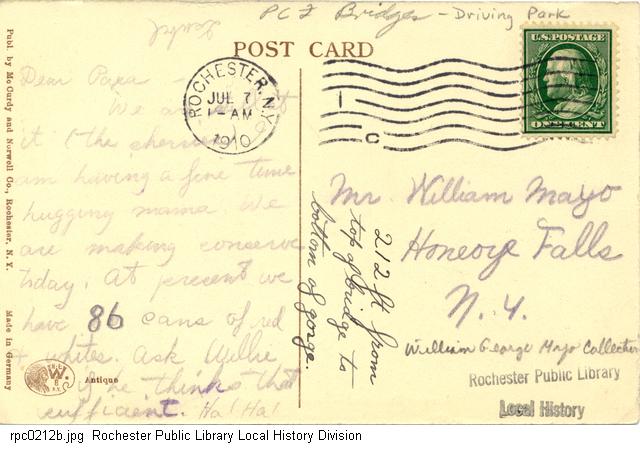 PCF Bridges - Driving Park
POST CARD
U.S. POSTAGE
ONE CENT
ROCHESTER, N.Y.
JUL 7
1-AM
1910
C
Publ. by McCurdy and Norwell Co., Rochester, N. Y.
Made in Germany
Dear Papa -
We are
it (the cherries)
am having a fine time
hugging mama. We
are making conserve
today. At present we
have 86 cans of red
+ whites. Ask Willie
if he thinks that
sufficient. Ha! Ha!
Antique
212 ft from
top of bridge to
bottom of gorge.
Mr. William Mayo
Honeoye Falls
N.Y.
William George Mayo Collection
Rochester Public Library
Local History
rpc0212b.jpg Rochester Public Library Local History Division